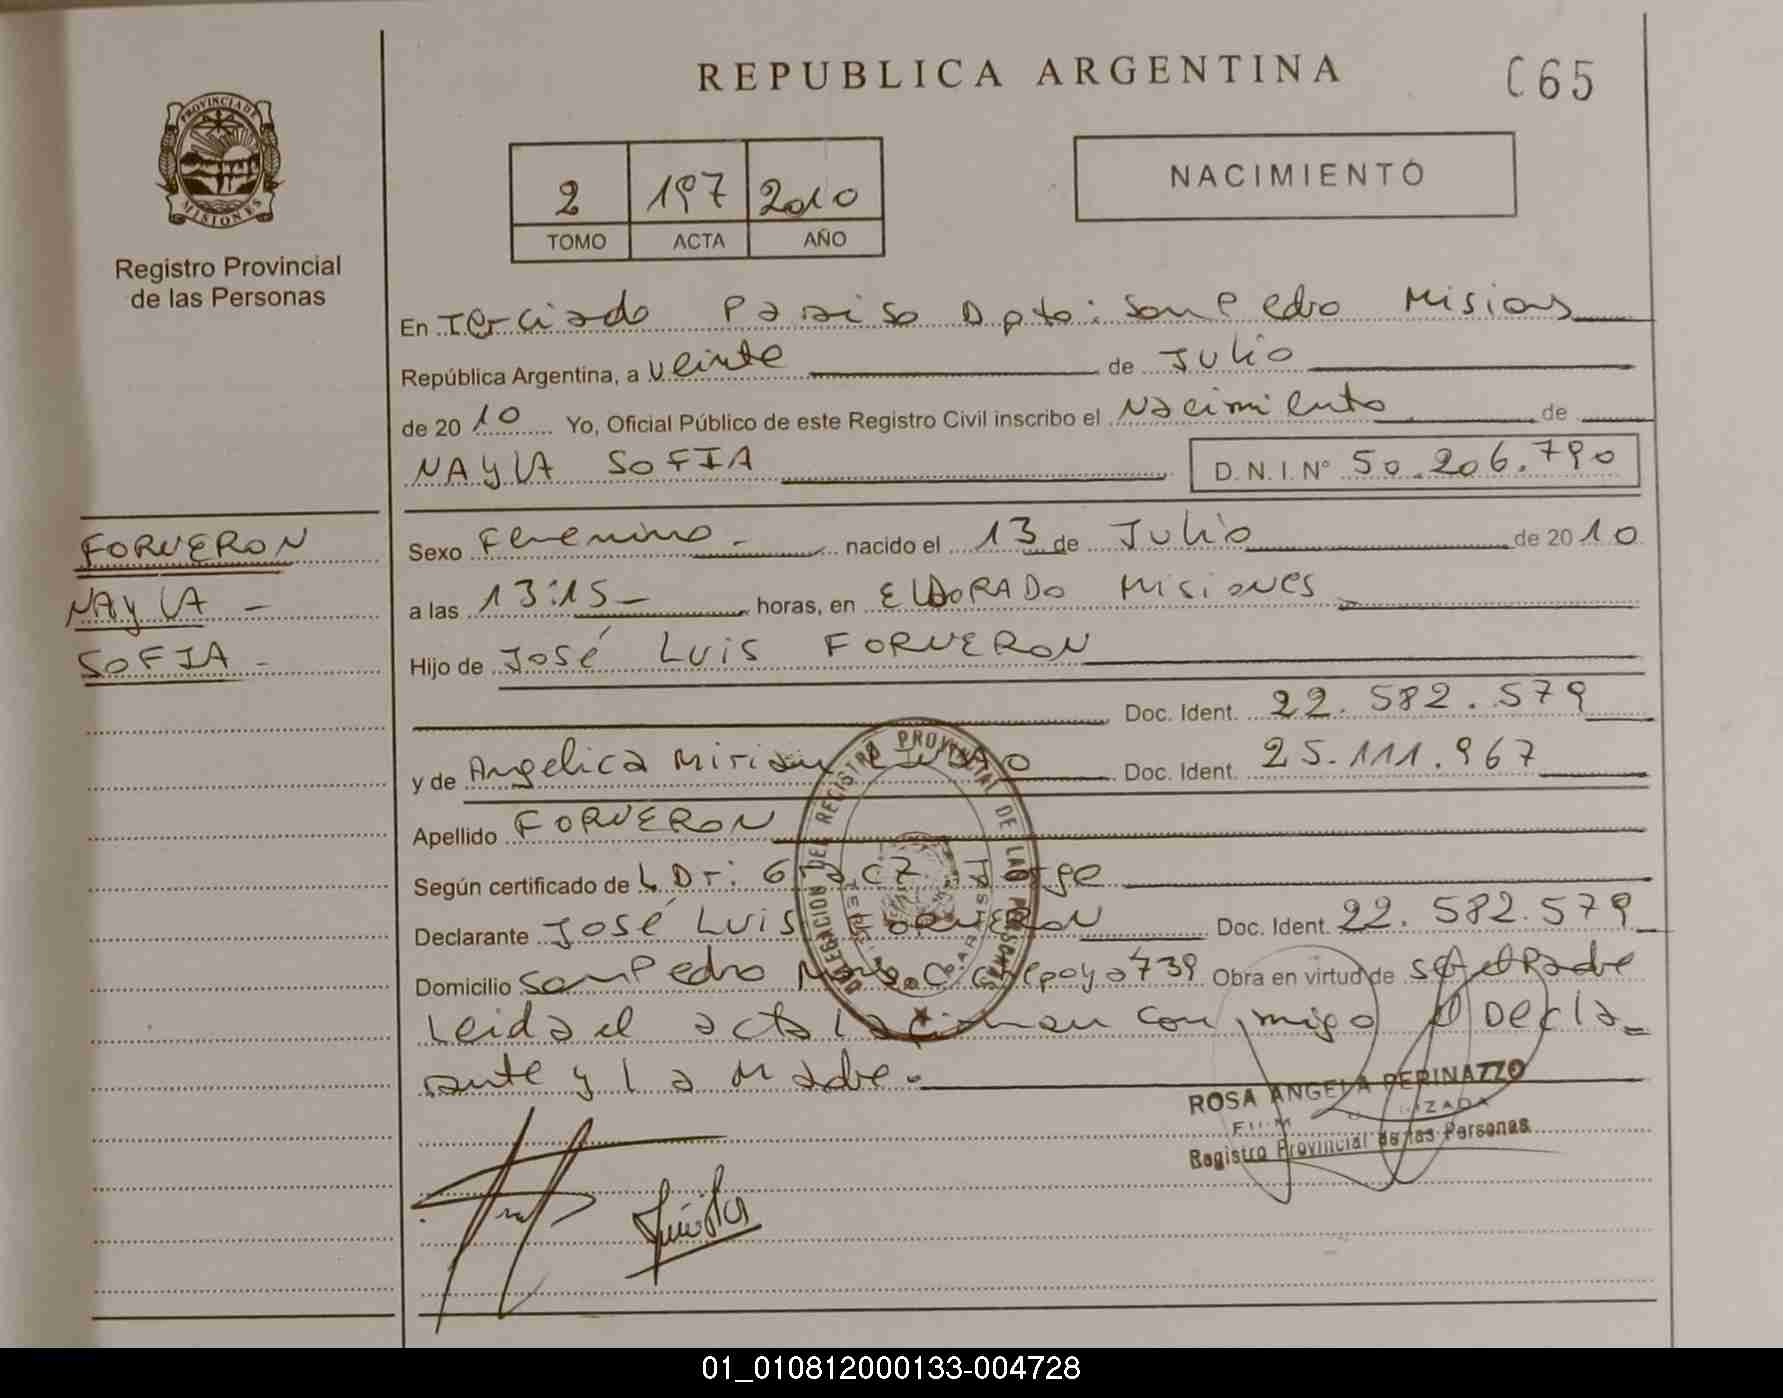 REPUBLICA ARGENTINA
C65
PROVINCIA DE
MISIONES
Registro Provincial
de las Personas
2 197 2010
TOMO ACTA AÑO
NACIMIENTO
En Terciado Paraiso Dpto: San Pedro Misiones
República Argentina, a veinte de Julio
de 2010 Yo, Oficial Público de este Registro Civil inscribo el Nacimiento de
NAYLA SOFIA D.N.I. N° 50.206.790
FORNERON
NAYLA -
SOFIA -
Sexo Femenino - nacido el 13 de Julio de 2010
a las 13:15 - horas, en ELDORADO MISIONES
Hijo de José Luis FORNERON
Doc. Ident. 22.582.579
y de Angelica Mirian Doc. Ident. 25.111.967
Apellido FORNERON
Según certificado de L Dr: Jorge
Declarante José Luis FORNERON Doc. Ident. 22.582.579
Domicilio San Pedro 739 Obra en virtud de Padre
Leida el acta la firman con migo el Decla-
rante y la Madre.
DELEGACION DEL REGISTRO PROVINCIAL DE LAS PERSONAS
ROSA ANGELA PERINAZZO
Registro Provincial de las Personas
01_010812000133-004728